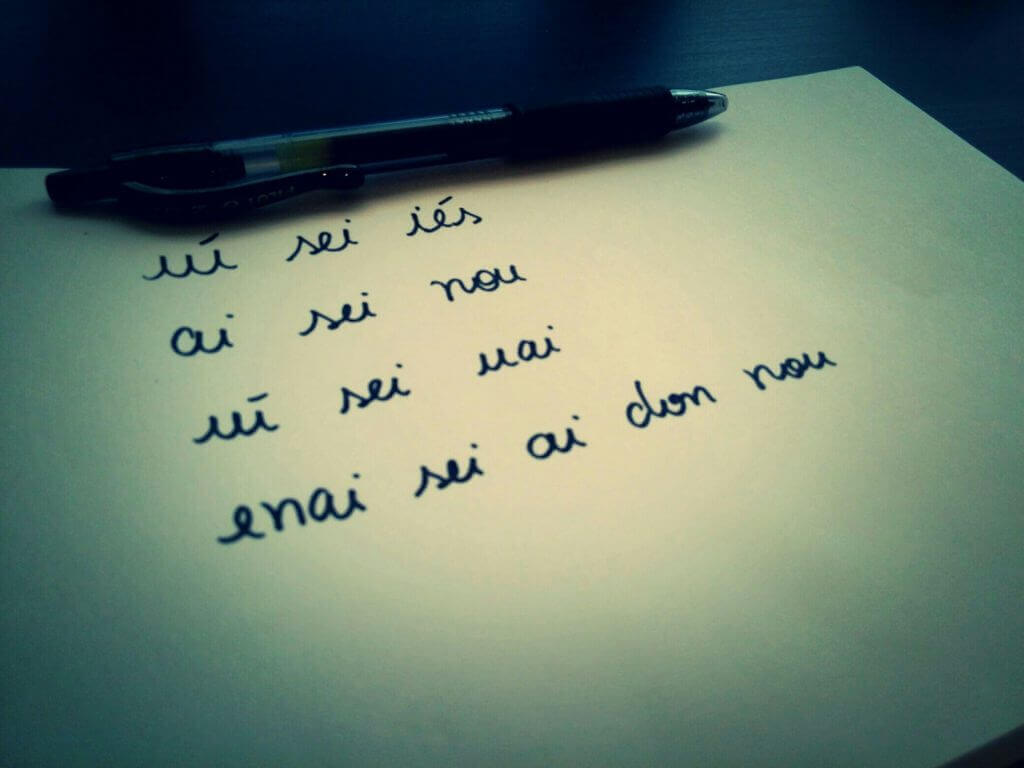 iú sei iés
ai sei nou
iú sei uai
enai sei ai don nou